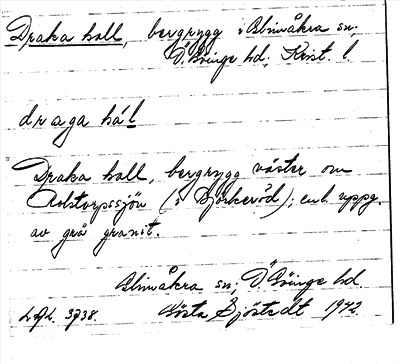 Draka hall, bergrygg i Almåkra sn,
Ö. Göinge hd; Krist. l.
draga hál
Draka hall, bergrygg väster om
Robstorpssjön (i Björkeröd); enl. uppg.
av grå granit.
Almåkra sn, Ö Göinge hd
Gösta Sjöstedt 1942.